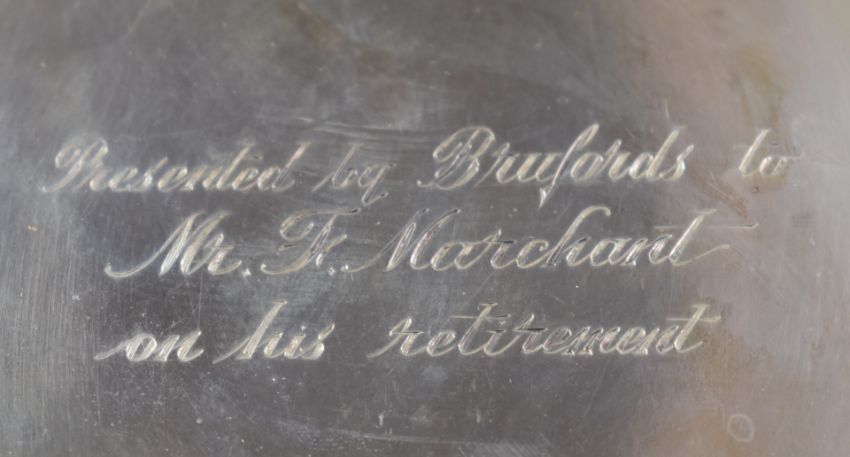 Presented by Brufords to
Mr. F. Marchant
on his retirement